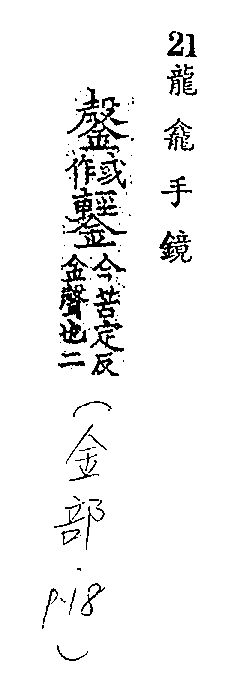 21 龍龕手鏡
鏧或作鑋今苦定反金聲也二（金部 p.18）